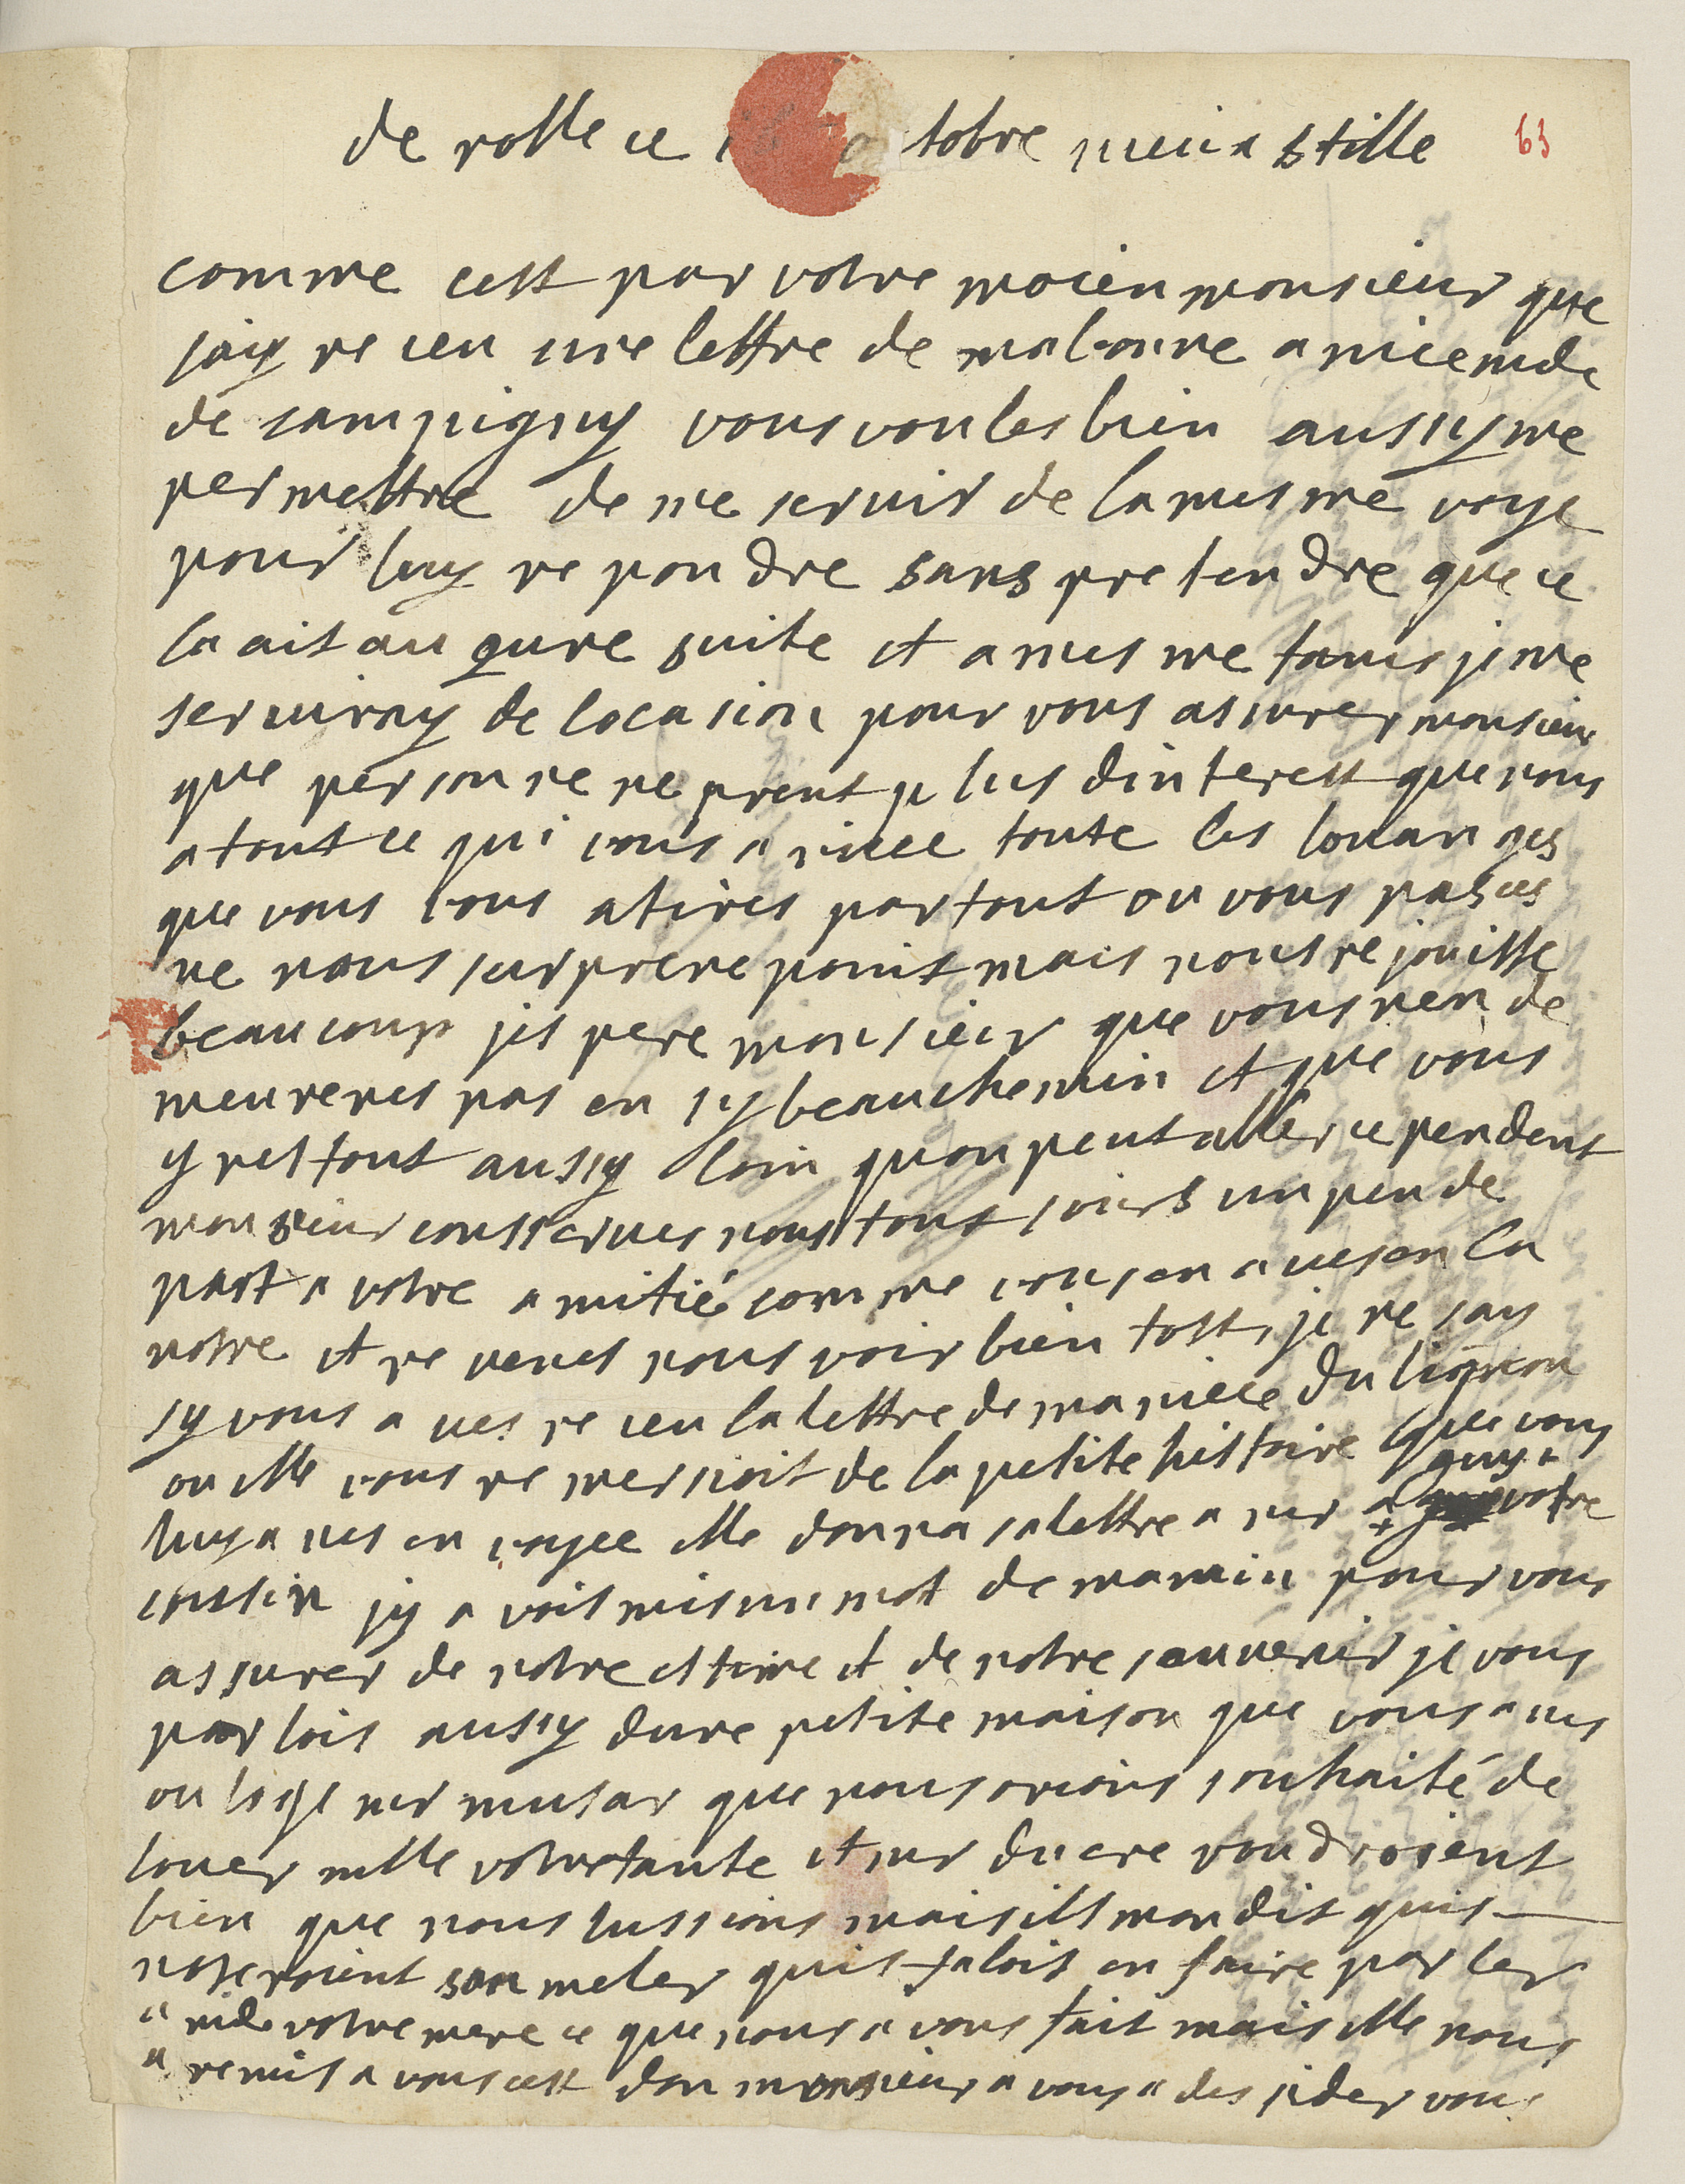 de rolle ce octobre vieux stille 63
comme cest par votre moien monsieur que
jaiy receu une lettre de ma bonne amie mde
de sampigny vous voules bien aussy me
permettre de me servir de la mesme voye
pour luy repondre sans pretendre que ce
la ait auqune suite et a mesme tams je me
serviray de locasion pour vous assurer monsieur
que personne ne prent plus dinterest que nous
a tout ce qui vous arivee toute les louanges
que vous vous atires partout ou vous passes
ne nous surprene point mais nous rejouisse
beaucoup jespere monsieur que vous nen de
meureres pas en sy beau chemin et que vous
yres tout aussy loin quon peut aller cependent
monsieur conserves nous tousjours un peu de
part a votre amitié comme vous en aves en la
notre et revenes nous voir bien tost, je ne say
sy vous aves receu la lettre de ma niece du lignon
ou elle vous remersioit de la petite histoire que vous
luy aves envoyee elle donna sa lettre a mr + guy + votre
cousin jy avois mis un mot de ma main pour vous
assurer de notre estime et de notre souvenir je vous
parlois aussy dune petite maison que vous aves
ou loge mr musar que nous orions souhaité de
louer mlle votre tante et mr ducre voudroient
bien que nous lussions mais ils mon dit quis
noseroient san meler quis faloit en faire parler
a mde votre mere ce que nous avons fait mais elle nous
a remis a vous cest don monsieur a vous a desider vous